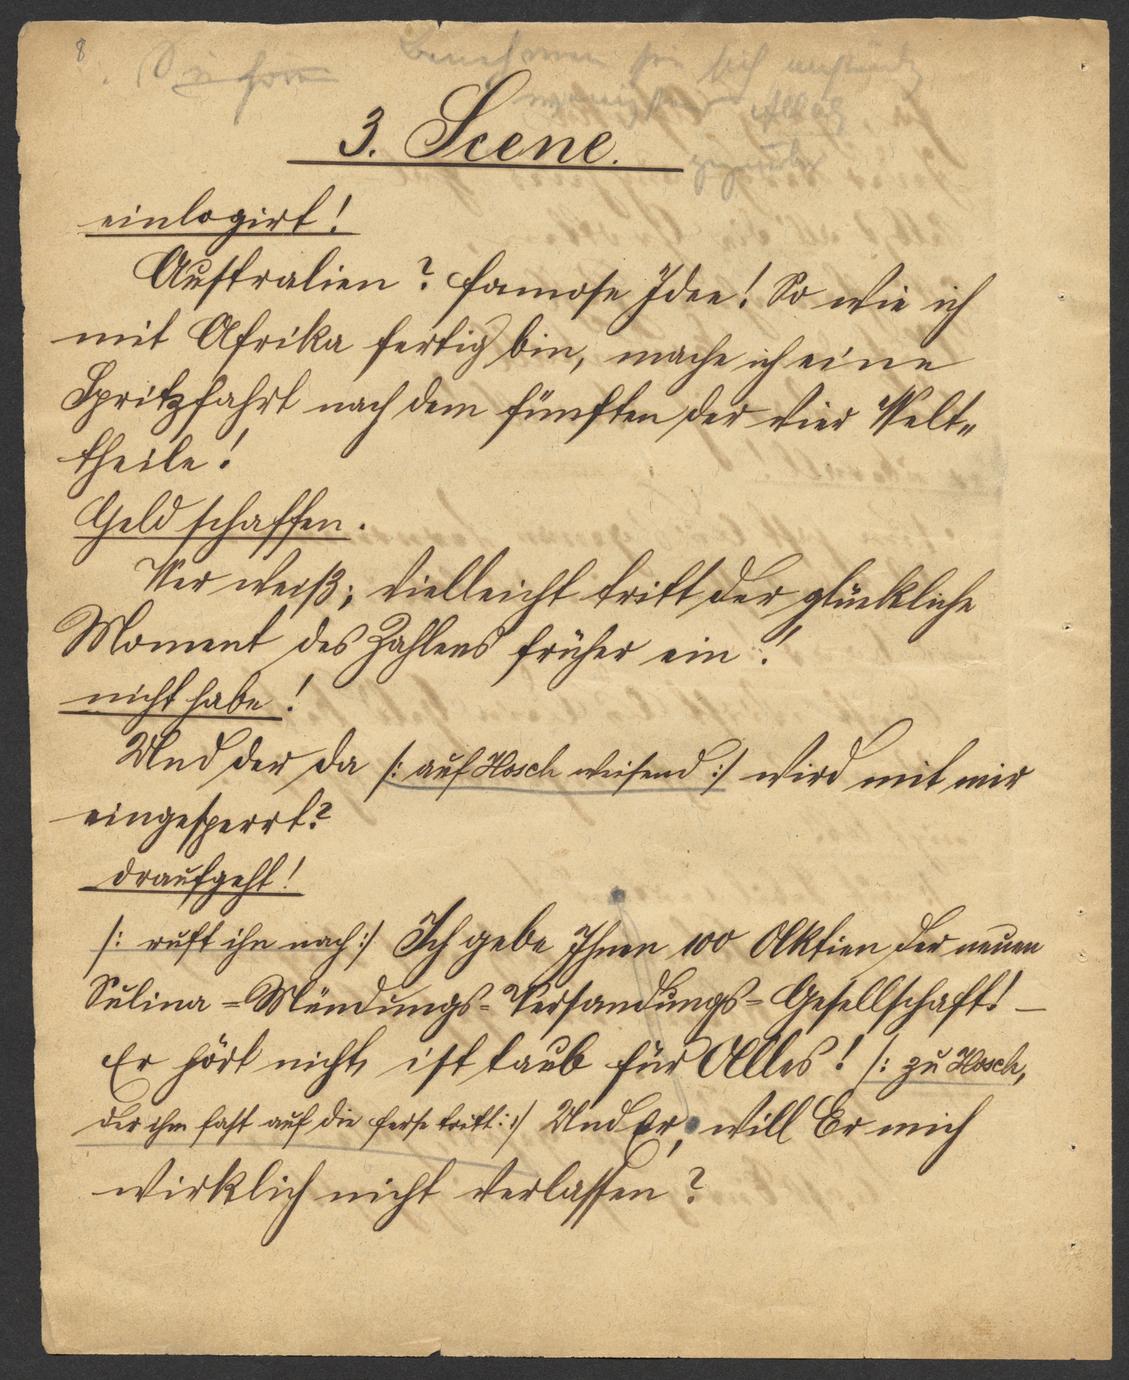 8
Benehmen sie sich anständig
3. Scene.
einlogirt!
Australien? famose Idee! So wie ich
mit Afrika fertig bin, mache ich eine
Spritzfahrt nach dem fünften der vier Welt=
theile!
Geld schaffen.
Wer weiß; vielleicht tritt der glückliche
Moment des Zahlens früher ein!
nicht habe!
Und der da /: auf Hosch weisend :/ wird mit mir
eingesperrt?
draufgeht!
/: ruft ihn nach :/ Ich gebe Ihnen 100 Aktien der neuen
Sulina=Mündungs=Versandungs=Gesellschaft! —
Er hört nicht, ist taub für Alles! /: zu Hosch,
der ihm fast auf die Ferse tritt :/ Und Er, will Er mich
wirklich nicht verlassen?